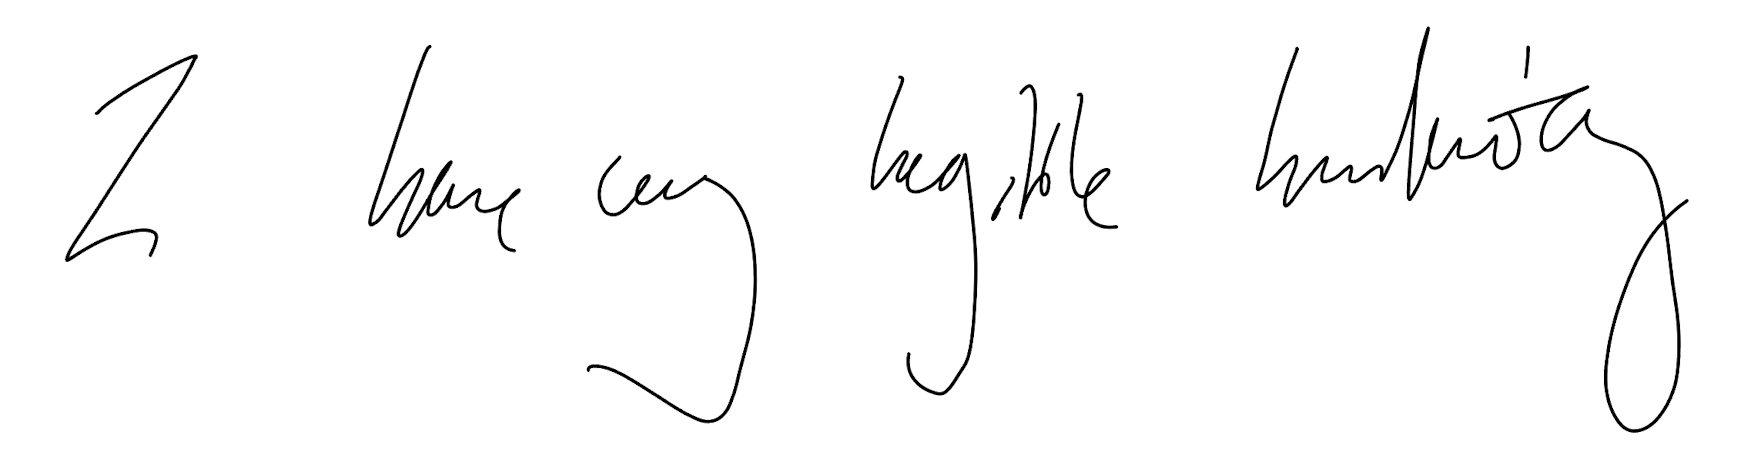 I have very legible handwriting